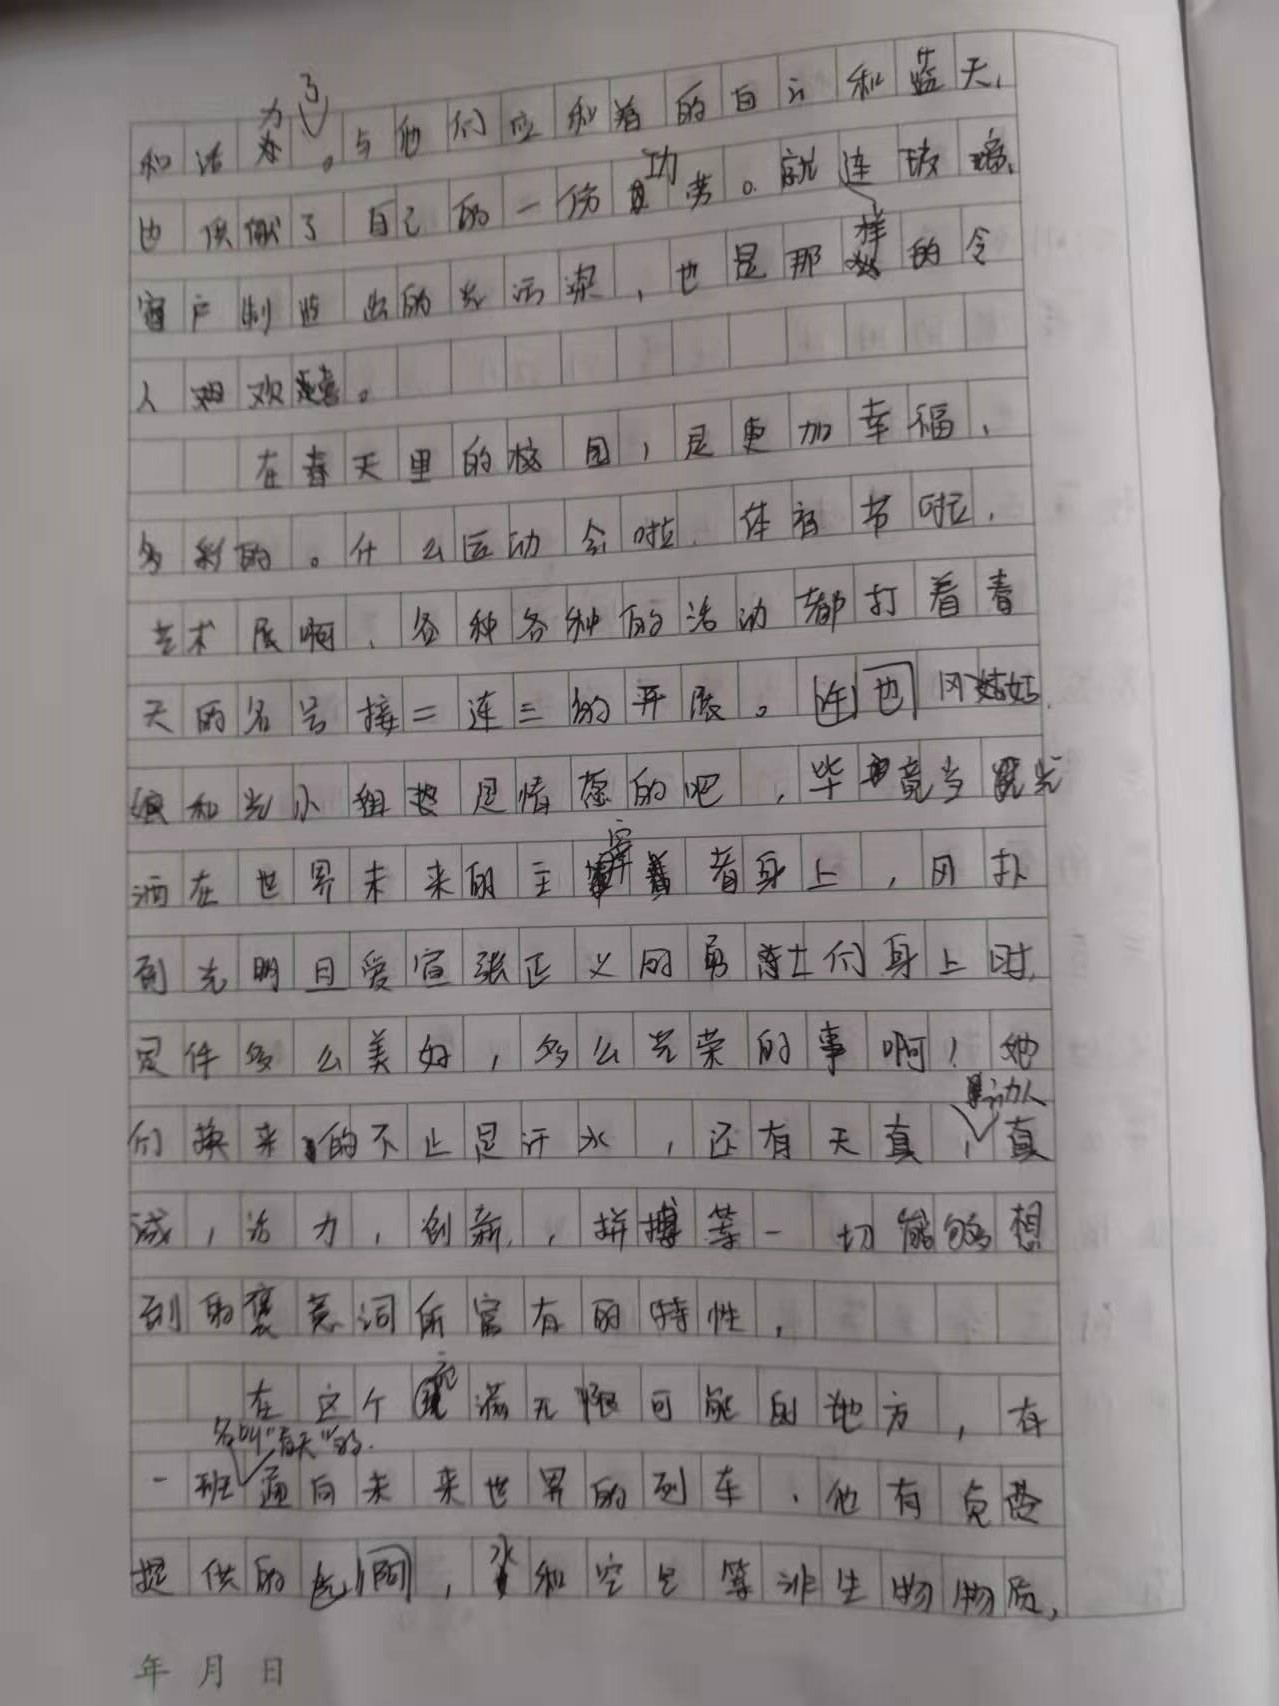 和活为了。与他们应和着的白云和蓝天,
也供献了自己的一份功劳。就连玻璃,
窗户制造出的光污染,也是那样的令
人欢喜。
在春天里的校园,是更加幸福、
多彩的。什么运动会啦、体育节啦,
艺术展啊,各种各种的活动都打着春
天的名号接二连三的开展。连也风姑姑
娘和光小姐也是情愿的吧,毕竟当光
洒在世界未来的主宰者身上,风扑
到光明且爱宣张正义的勇士们身上时,
是件多么美好,多么光荣的事啊!她
们换来的不止是汗水,还有天真,动人,真
诚,活力,创新,拼搏等一切能够想
到的褒意词所富有的特性,
在这个充满无限可能的地方,有
一班名叫“春天”的通向未来世界的列车,他有免费
提供的,水和空气等非生物物质,
年 月 日